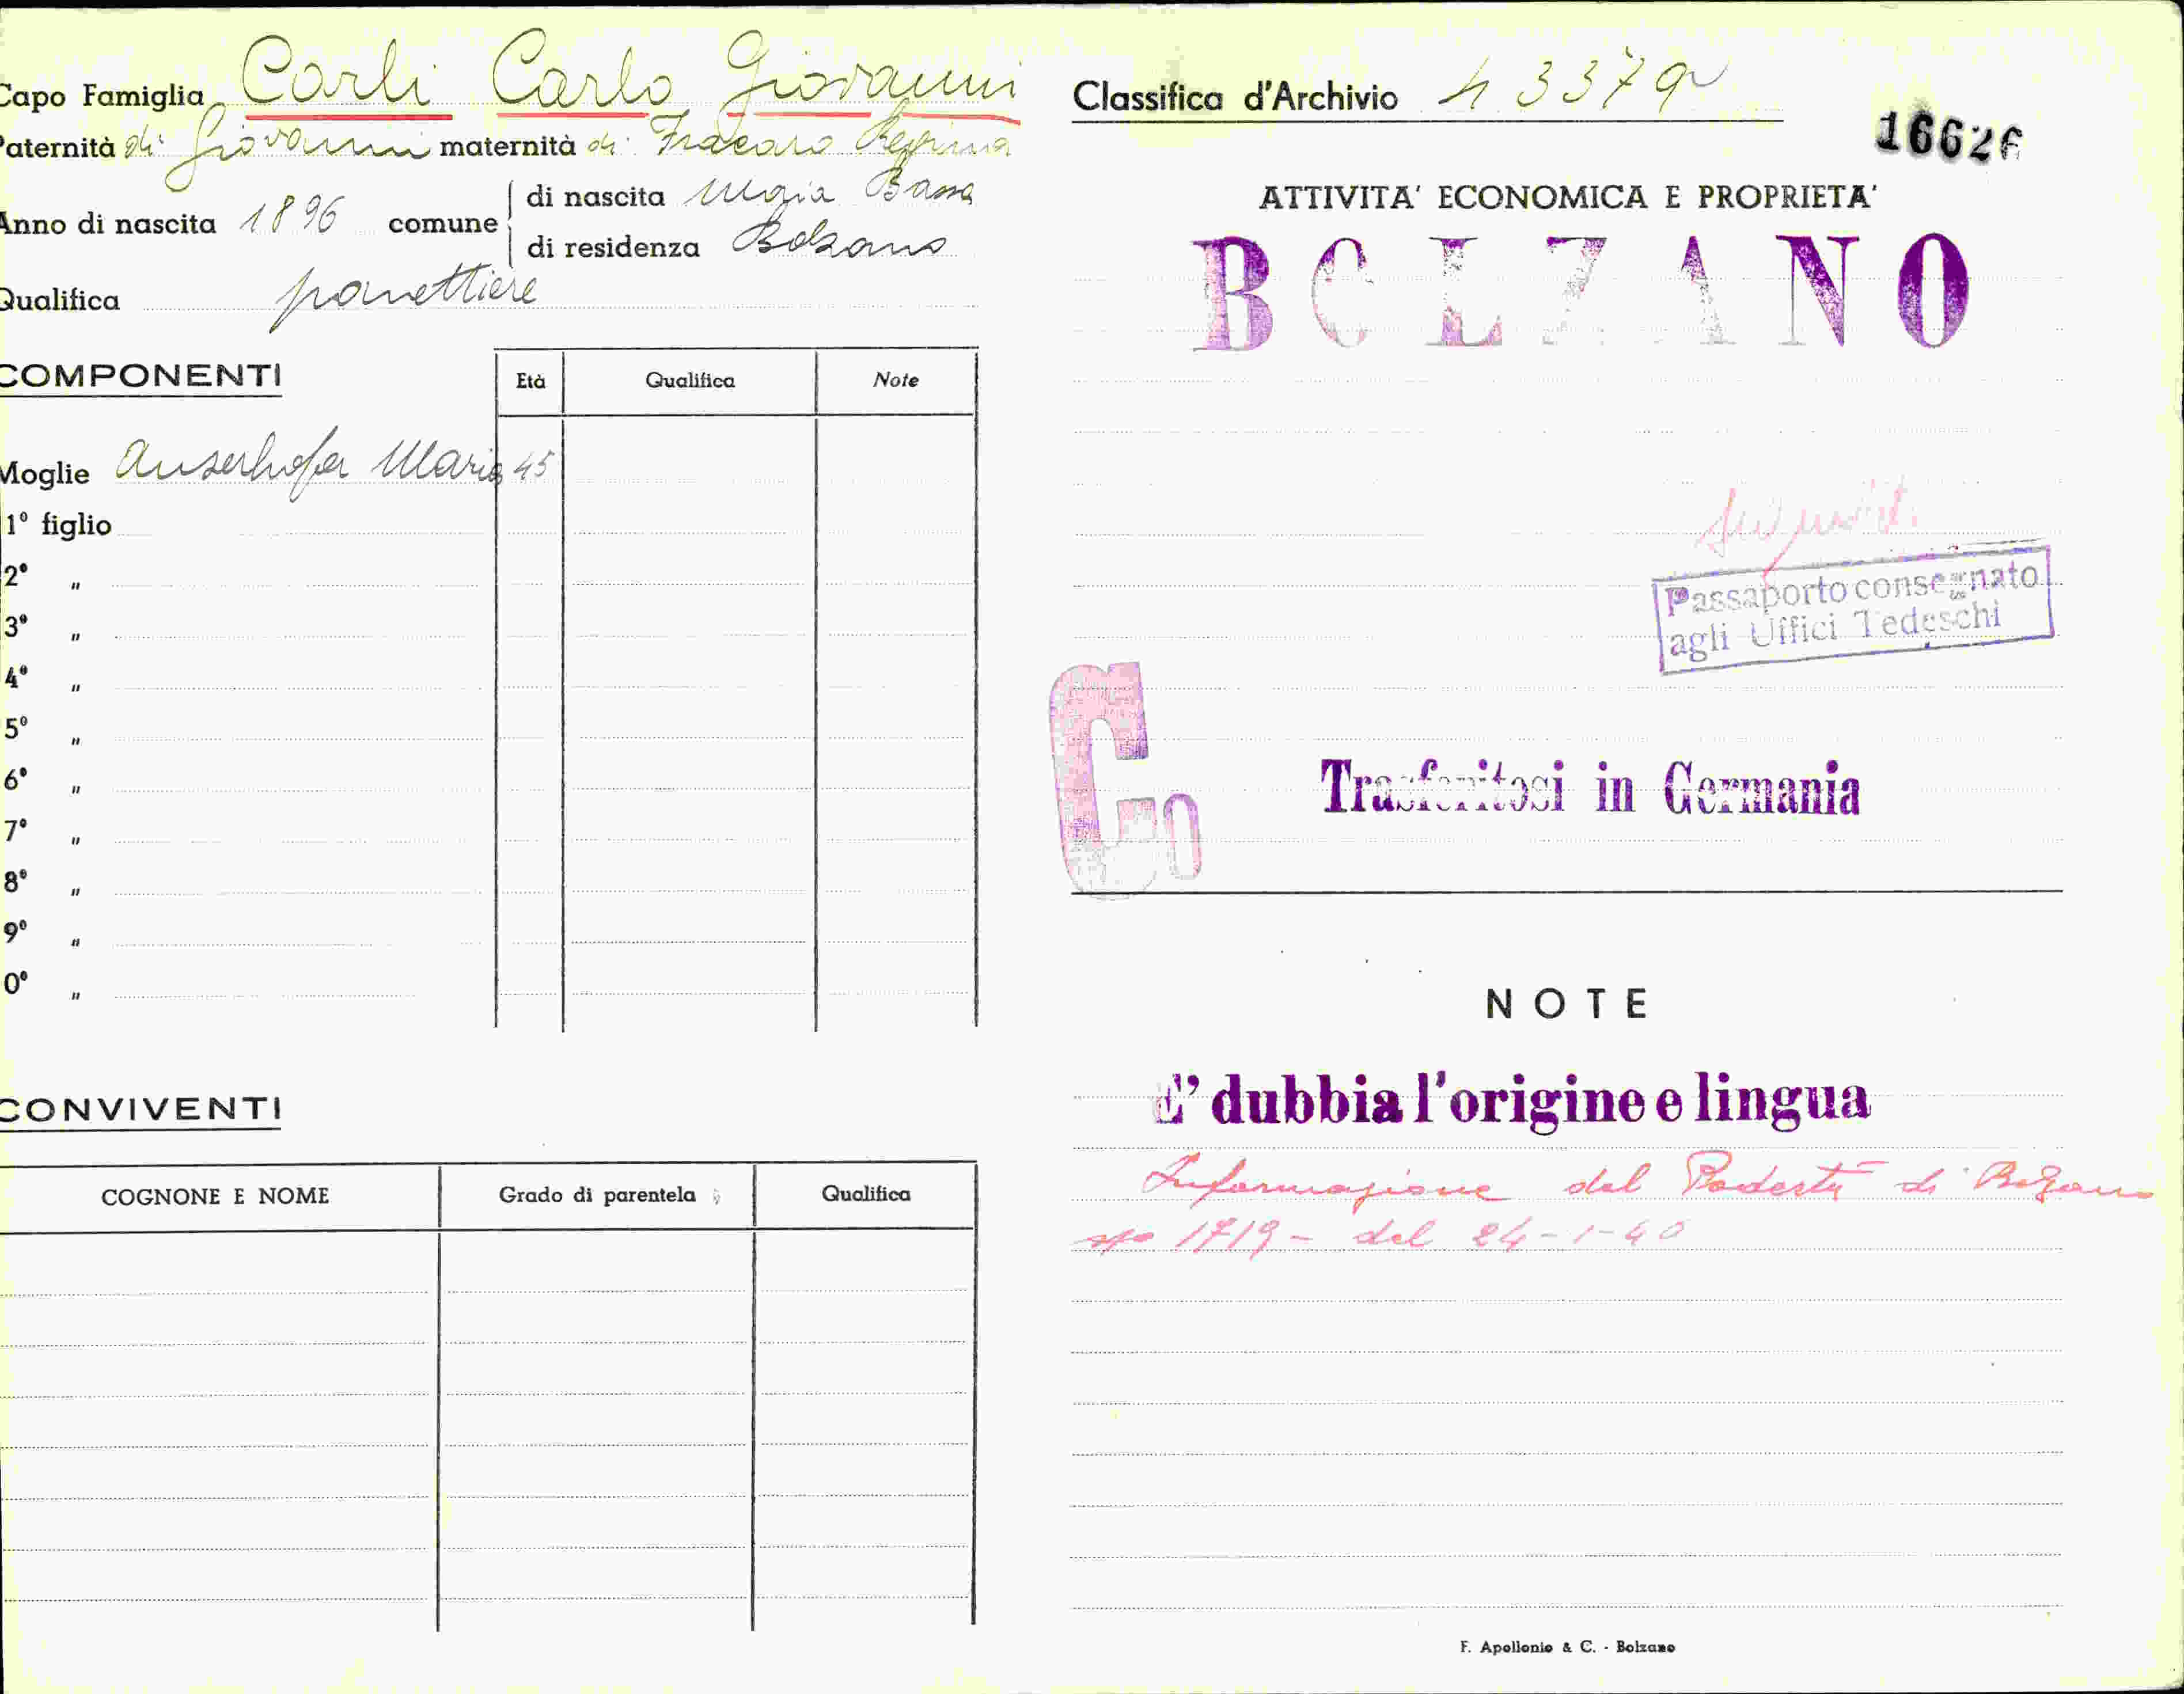 Capo Famiglia Carli Carlo Giovanni
Paternità di Giovanni maternità di Fracaro Regina
Anno di nascita 1896 comune
di nascita Maia Bassa
di residenza Bolzano
Qualifica panettiere
COMPONENTI
Età Qualifica Note
Moglie Auserhofer Maria 45
1º figlio
2º "
3º "
4º "
5º "
6º "
7º "
8º "
9º "
0º "
CONVIVENTI
COGNONE E NOME Grado di parentela Qualifica
Classifica d'Archivio 43379
16626
ATTIVITA' ECONOMICA E PROPRIETA'
BOLZANO
Passaporto consegnato
agli Uffici Tedeschi
Co
Trasferitosi in Germania
NOTE
E' dubbia l'origine e lingua
Informazione del Podestà di Bolzano
1719 - del 24-1-40
F. Apollonio & C. - Bolzano